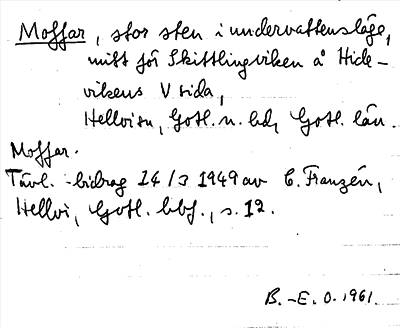 Moffar, stor sten i undervattensläge,
mitt för Skittlingviken å Hide-
vikens V sida,
Hellvi sn, Gotl. n. hd, Gotl. län.
Moffar.
Tävl.-bidrag 14/3 1949 av C. Franzén,
Hellvi, Gotl. bbf., s. 12.
B.-E. O. 1961.